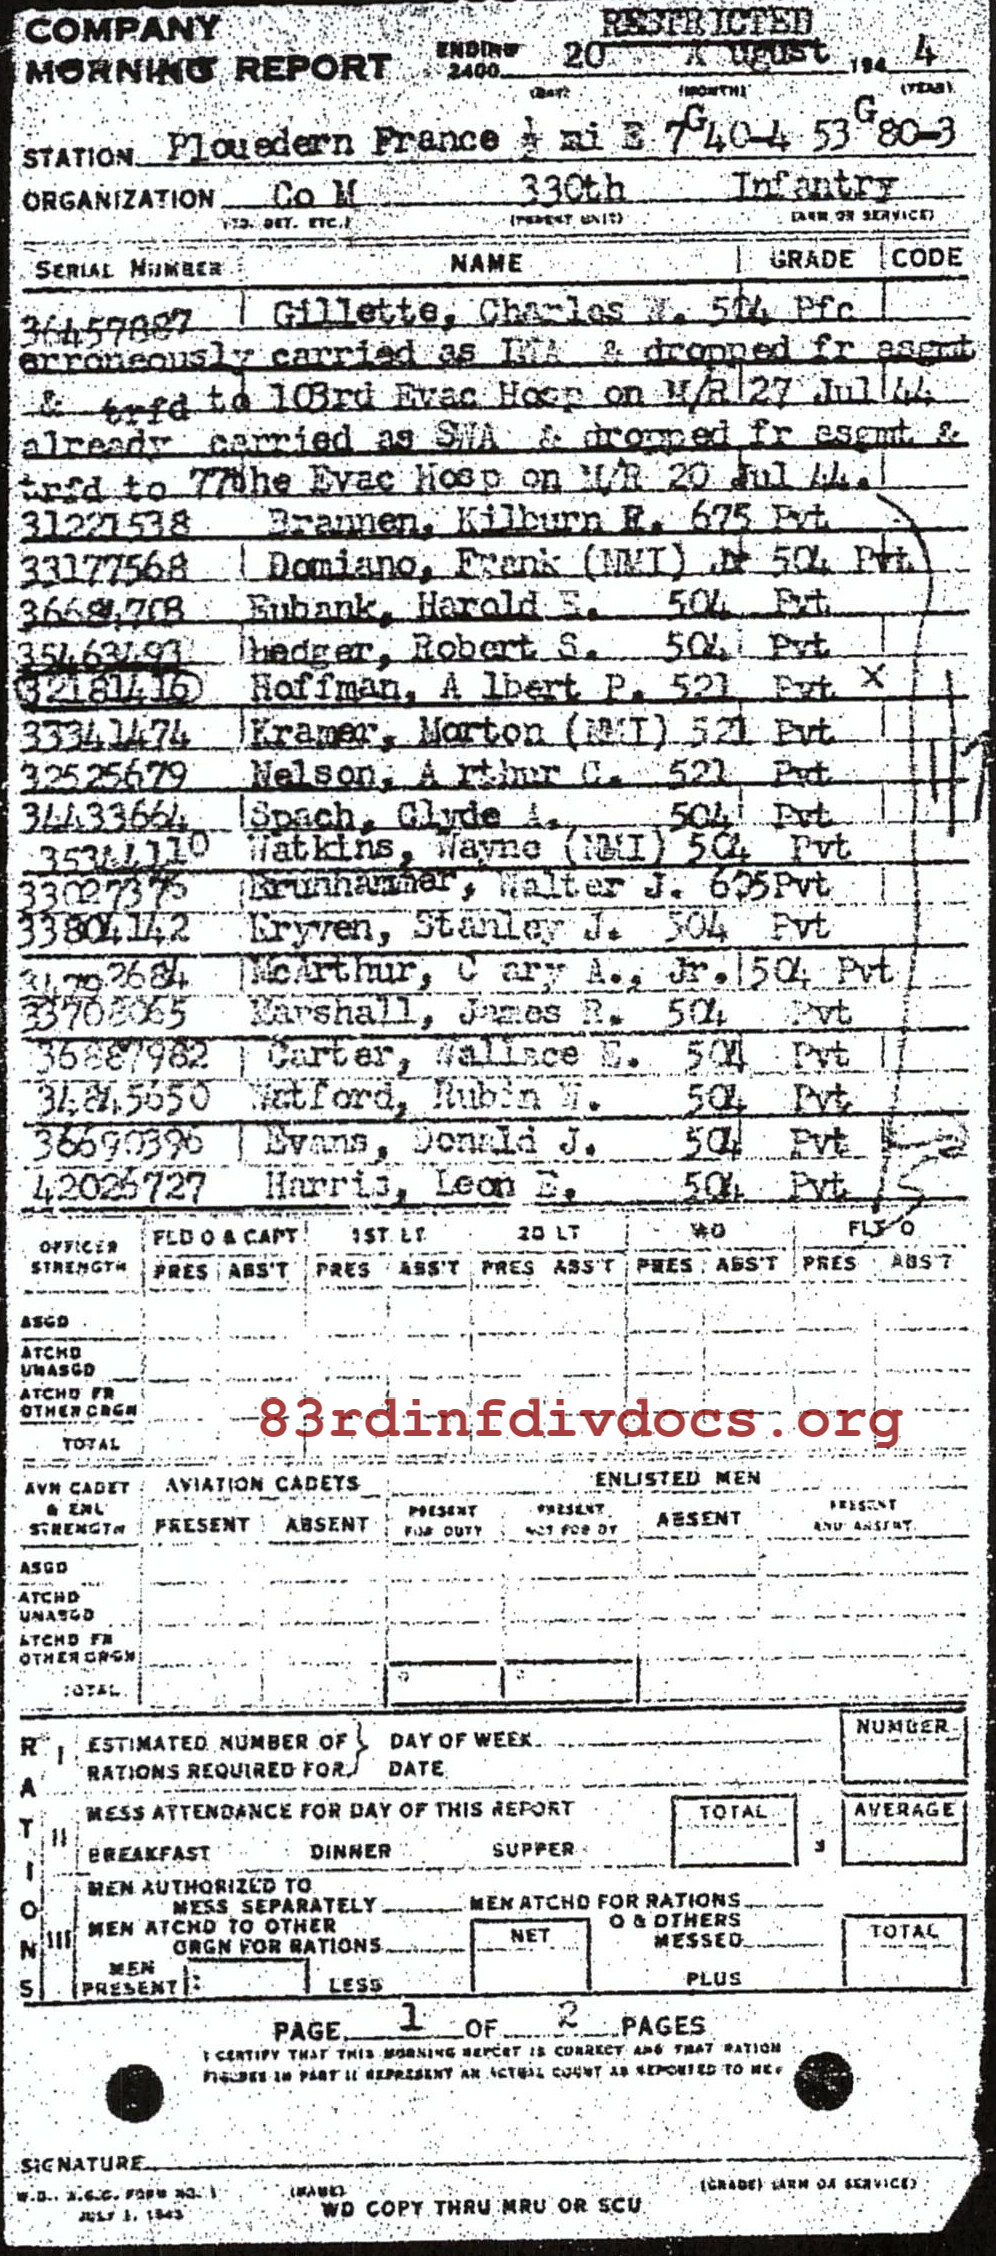 RESTRICTED
COMPANY
MORNING REPORT ENDING 2400 20 A ugust 194 4
(DAY) (MONTH) (YEAR)
STATION Plouedern France ½ mi E 7G40-4 53G80-3
ORGANIZATION Co M 330th Infantry
(PARENT UNIT) (ARM OR SERVICE)
SERIAL NUMBER NAME GRADE CODE
36457887 Gillette, Charles W. 504 Pfc
erroneously carried as LWA & dropped fr asgmt
& trfd to 103rd Evac Hosp on M/R 27 Jul 44
already carried as SWA & dropped fr asgmt &
trfd to 77the Evac Hosp on M/R 20 Jul 44.
31221538 Brannen, Kilburn R. 675 Pvt
33177568 Domiano, Frank (NMI) Jr 504 Pvt
36684708 Eubank, Harold E. 504 Pvt
35463493 hedger, Robert S. 504 Pvt
32181416 Hoffman, A lbert P. 521 Pvt X
33341474 Kramer, Morton (NMI) 521 Pvt
32525679 Nelson, A rthur C. 521 Pvt
34433664 Spach, Clyde A. 504 Pvt
35344110 Watkins, Wayne (NMI) 504 Pvt
33027375 Brunhammer, Walter J. 605 Pvt
33804142 Kryven, Stanley J. 504 Pvt
34792684 McArthur, C ary A., Jr. 504 Pvt
33708065 Marshall, James R. 504 Pvt
36887982 Carter, Wallace E. 504 Pvt
34845650 Watford, Rubin W. 504 Pvt
36690396 Evans, Donald J. 504 Pvt
42026727 Harris, Leon E. 504 Pvt
OFFICER STRENGTH FLD O & CAPT 1ST LT 2D LT WO FLT O
PRES ABS'T PRES ABS'T PRES ABS'T PRES ABS'T PRES ABS'T
ASGD
ATCHD UNASGD
ATCHD FR OTHER ORGN
TOTAL
83rdinfdivdocs.org
AVN CADET & ENL STRENGTH AVIATION CADETS ENLISTED MEN
PRESENT ABSENT PRESENT FOR DUTY PRESENT NOT FOR DY ABSENT PRESENT AND ABSENT
ASGD
ATCHD UNASGD
ATCHD FR OTHER ORGN
TOTAL
RATIONS
I ESTIMATED NUMBER OF RATIONS REQUIRED FOR DAY OF WEEK NUMBER
DATE
II MESS ATTENDANCE FOR DAY OF THIS REPORT TOTAL AVERAGE
BREAKFAST DINNER SUPPER 3
III MEN AUTHORIZED TO
MESS SEPARATELY MEN ATCHD FOR RATIONS
MEN ATCHD TO OTHER ORGN FOR RATIONS NET O & OTHERS MESSED TOTAL
MEN PRESENT LESS PLUS
PAGE 1 OF 2 PAGES
I CERTIFY THAT THIS MORNING REPORT IS CORRECT AND THAT RATION
FIGURES IN PART II REPRESENT AN ACTUAL COUNT AS REPORTED TO ME.
SIGNATURE
(NAME) (GRADE) (ARM OR SERVICE)
W.D., A.G.O. FORM NO. 1
JULY 1, 1943 WD COPY THRU MRU OR SCU